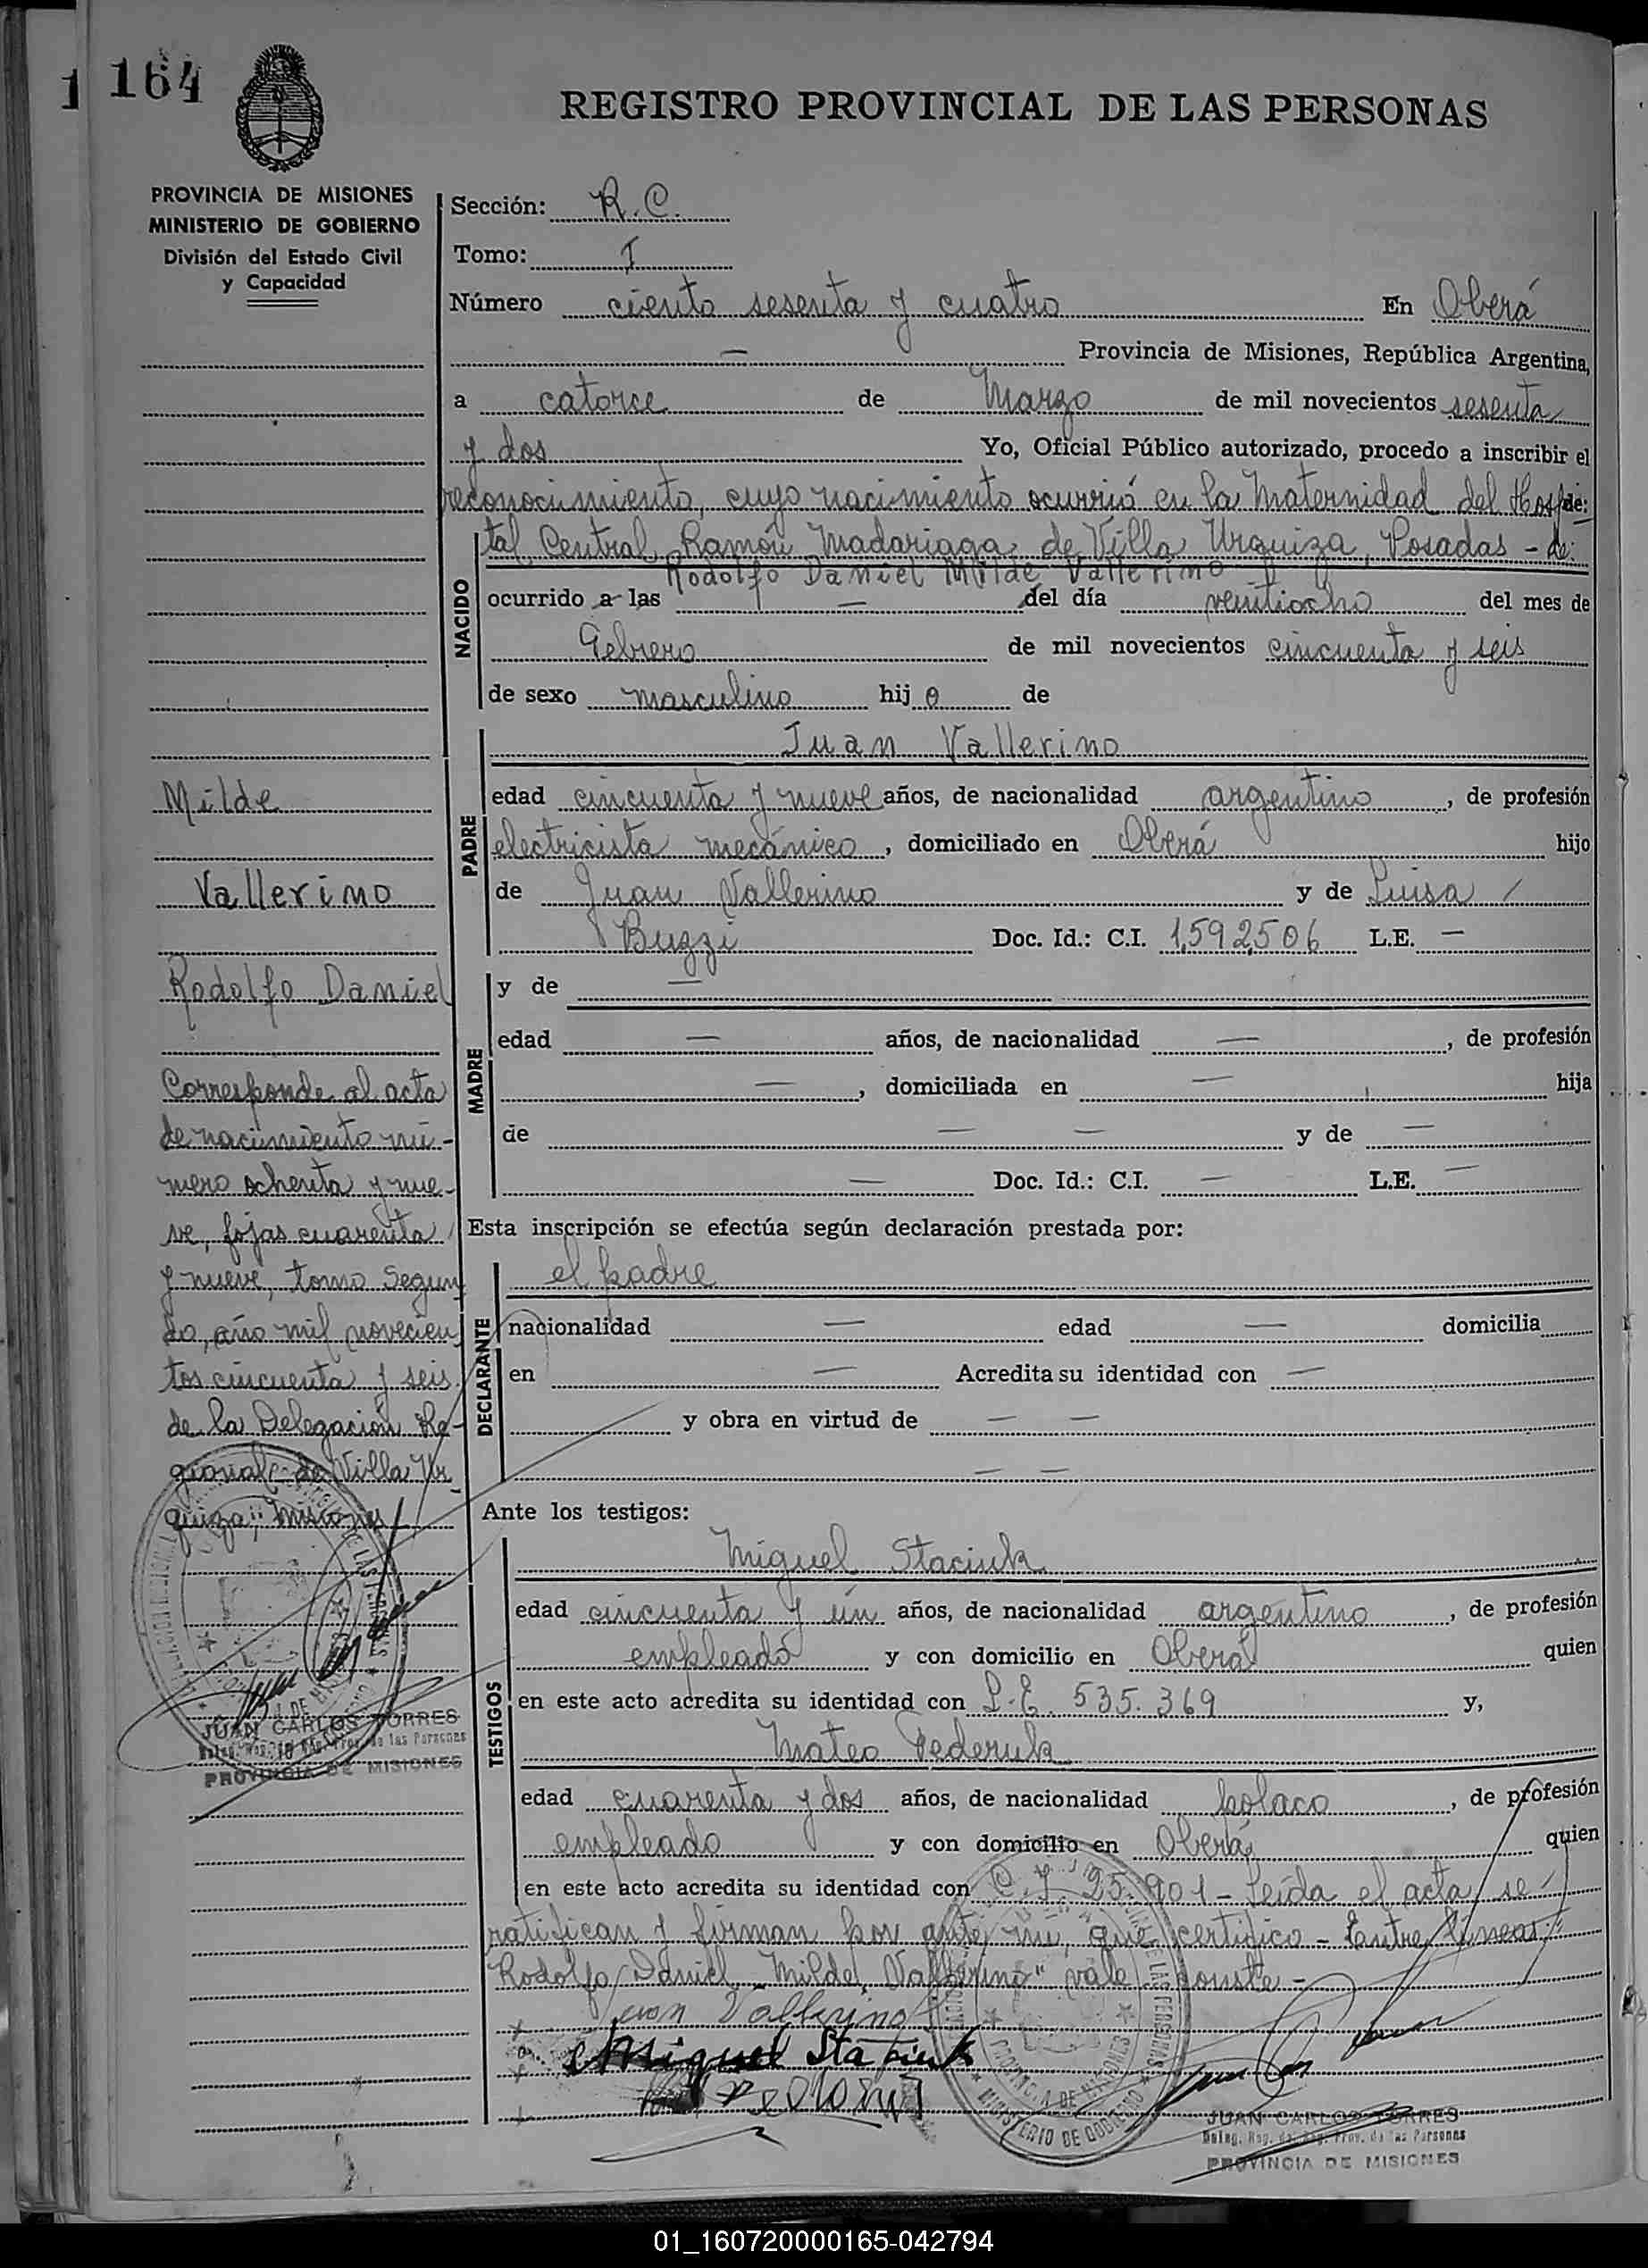 1 164
REGISTRO PROVINCIAL DE LAS PERSONAS
PROVINCIA DE MISIONES
MINISTERIO DE GOBIERNO
División del Estado Civil
y Capacidad
Milde
Vallerino
Rodolfo Daniel
Corresponde al acta
de nacimiento nú-
mero ochenta y nue-
ve, fojas cuarenta
y nueve, tomo segun
do, año mil novecien
tos cincuenta y seis
de la Delegación Re-
gional de Villa Ur
quiza, Misiones
JUAN CARLOS TORRES
Deleg. Reg. de Reg. Prov. de las Personas
PROVINCIA DE MISIONES
Sección: R.C.
Tomo: I
Número ciento sesenta y cuatro En Oberá
— Provincia de Misiones, República Argentina,
a catorce de Marzo de mil novecientos sesenta
y dos Yo, Oficial Público autorizado, procedo a inscribir el
reconocimiento, cuyo nacimiento ocurrió en la Maternidad del Hospi de:
NACIDO
tal Central Ramón Madariaga de Villa Urquiza, Posadas - de:
Rodolfo Daniel Milde Vallerino
ocurrido a las — del día veintiocho del mes de
Febrero de mil novecientos cincuenta y seis
de sexo masculino hijo de
PADRE
Juan Vallerino
edad cincuenta y nueve años, de nacionalidad argentino, de profesión
electricista mecánico, domiciliado en Oberá hijo
de Juan Vallerino y de Luisa
Buzzi Doc. Id.: C.I. 1.592.506 L.E. —
MADRE
y de —
edad — años, de nacionalidad —, de profesión
—, domiciliada en — hija
de — — y de —
— Doc. Id.: C.I. — L.E. —
Esta inscripción se efectúa según declaración prestada por:
DECLARANTE
el padre
nacionalidad — edad — domicilia
en — Acredita su identidad con —
y obra en virtud de — —
— —
Ante los testigos:
TESTIGOS
Miguel Staciuk
edad cincuenta y un años, de nacionalidad argentino, de profesión
empleado y con domicilio en Oberá quien
en este acto acredita su identidad con L.E. 535.369 y,
Mateo Federuk
edad cuarenta y dos años, de nacionalidad polaco, de profesión
empleado y con domicilio en Oberá quien
en este acto acredita su identidad con C.I. 25.901 - Leída el acta, se
ratifican y firman por ante mí, que certifico - Entre líneas:
Rodolfo Daniel Milde Vallerino" vale. conste -
Juan Vallerino
Miguel Staciuk
PROVINCIA DE MISIONES
MINISTERIO DE GOBIERNO
JUAN CARLOS TORRES
Deleg. Reg. de Reg. Prov. de las Personas
PROVINCIA DE MISIONES
01_160720000165-042794